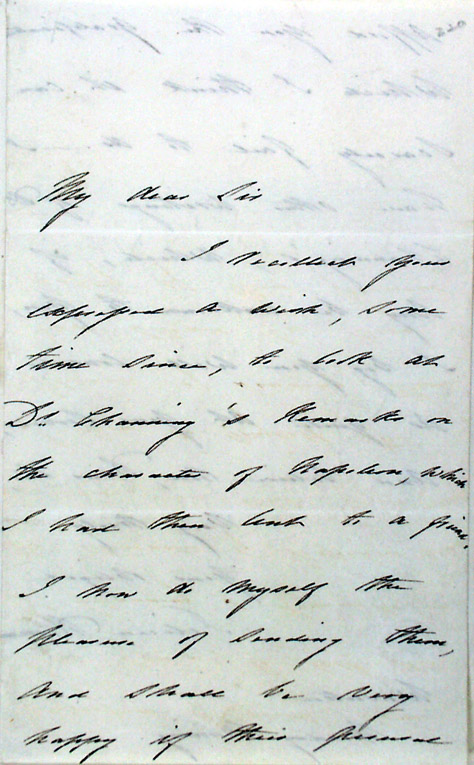 My dear Sir
I recollect you
expressed a wish, some
time since, to look at
Dr. Channing's Remarks on
the character of Napoleon, which
I had then lent to a friend.
I now do myself the
pleasure of sending them,
and shall be very
happy if their perusal